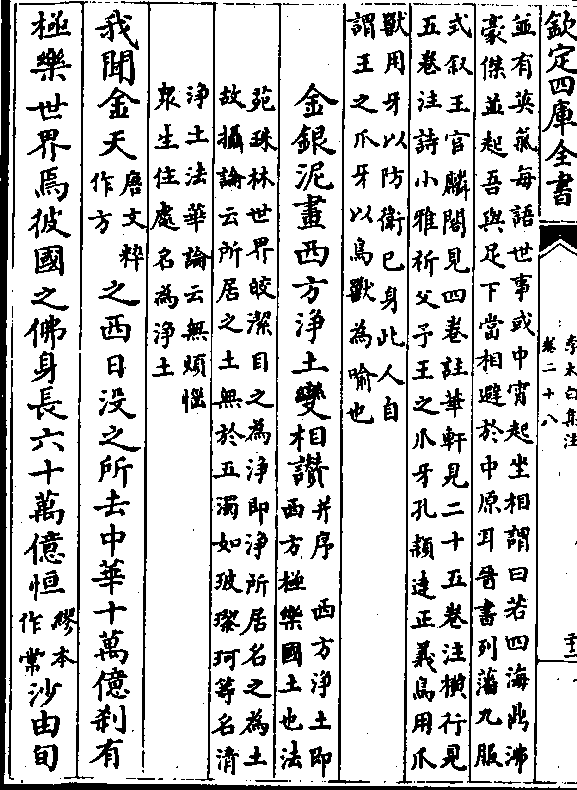 欽定四庫全書
李太白集注
卷二十八
並有英氣每語世事或中宵起坐相謂曰若四海鼎沸
豪傑並起吾與足下當相避於中原耳晉書列藩九服
式叙王官麟閣見四卷註華軒見二十五卷注横行見
五卷注詩小雅祈父予王之爪牙孔頴達正義鳥用爪
獸用牙以防衛已身此人自
謂王之爪牙以鳥獸為喻也
金銀泥畫西方淨土變相讚并序
西方淨土即
西方極樂國土也法
苑珠林世界皎潔目之為淨即淨所居名之為土
故攝論云所居之土無於五濁如玻瓈珂等名清
淨土法華論云無煩惱
衆生住處名為淨土
我聞金天唐文粹作方之西日没之所去中華十萬億刹有
極樂世界焉彼國之佛身長六十萬億恒繆本作常沙由旬